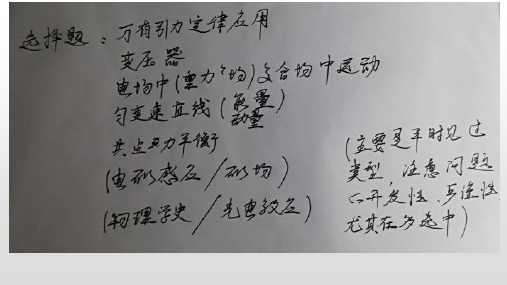 选择题：万有引力定律应用
变压器
电场中(重力场)复合场中运动
匀变速直线(能量
动量)
共点力平衡
(电磁感应/磁场)
(物理学史/光电效应)
(主要是平时见过
类型，注意问题
开放性、连性
尤其在多选中)